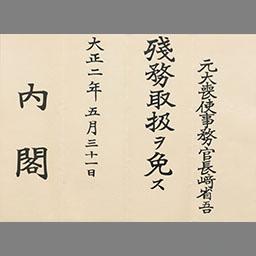 元大喪使事務官長﨑省吾
殘務取扱ヲ免ス
大正二年五月三十一日
內閣